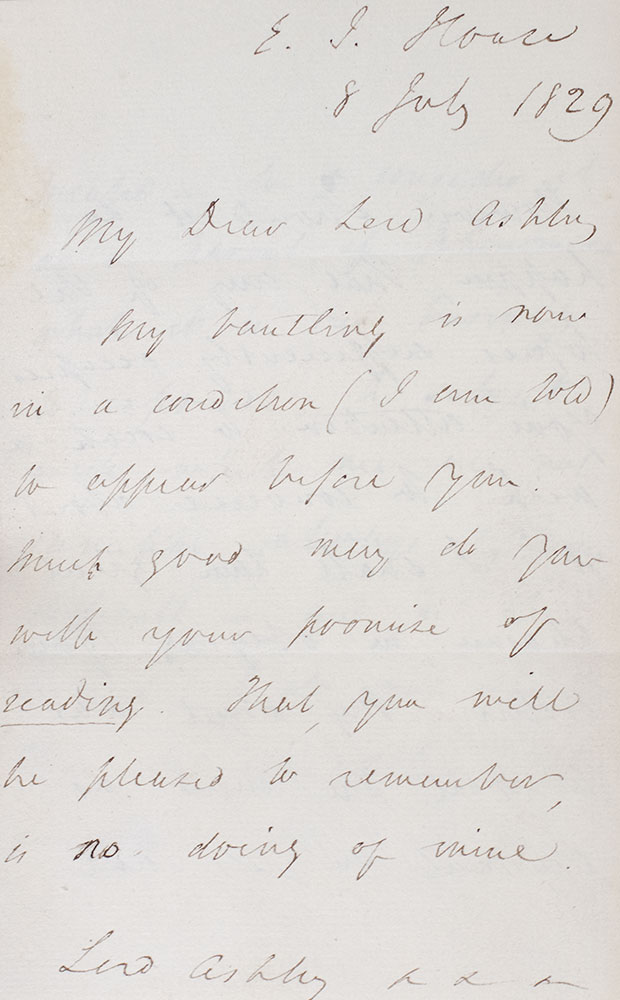 E. I. House
8 July 1829
My Dear Lord Ashley
My bantling is now
in a condition (I am told)
to appear before you.
Much good may do you
with your promise of
reading. That, you will
be pleased to remember,
is no doing of mine.
Lord Ashley x x x